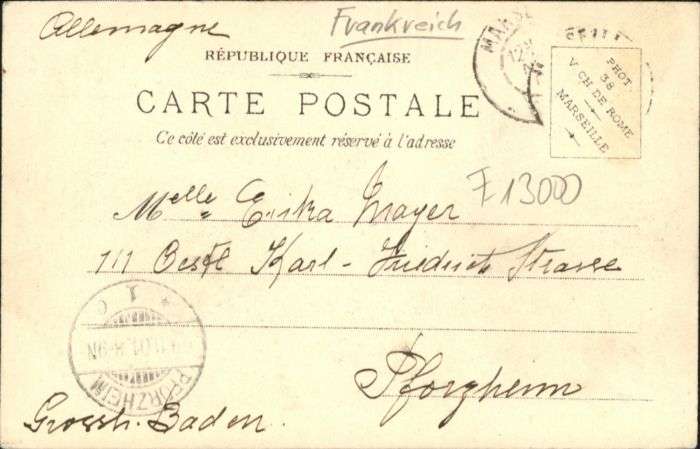 Allemagne
Frankreich
RÉPUBLIQUE FRANÇAISE
CARTE POSTALE
Ce côté est exclusivement réservé à l'adresse
PHOT.
38
V CH DE ROME
MARSEILLE
F 13000
Melle Erika Mayer
111 Oestl Karl-Friedrich Strasse
Pforzheim
PFORZHEIM
Grossh. Baden.